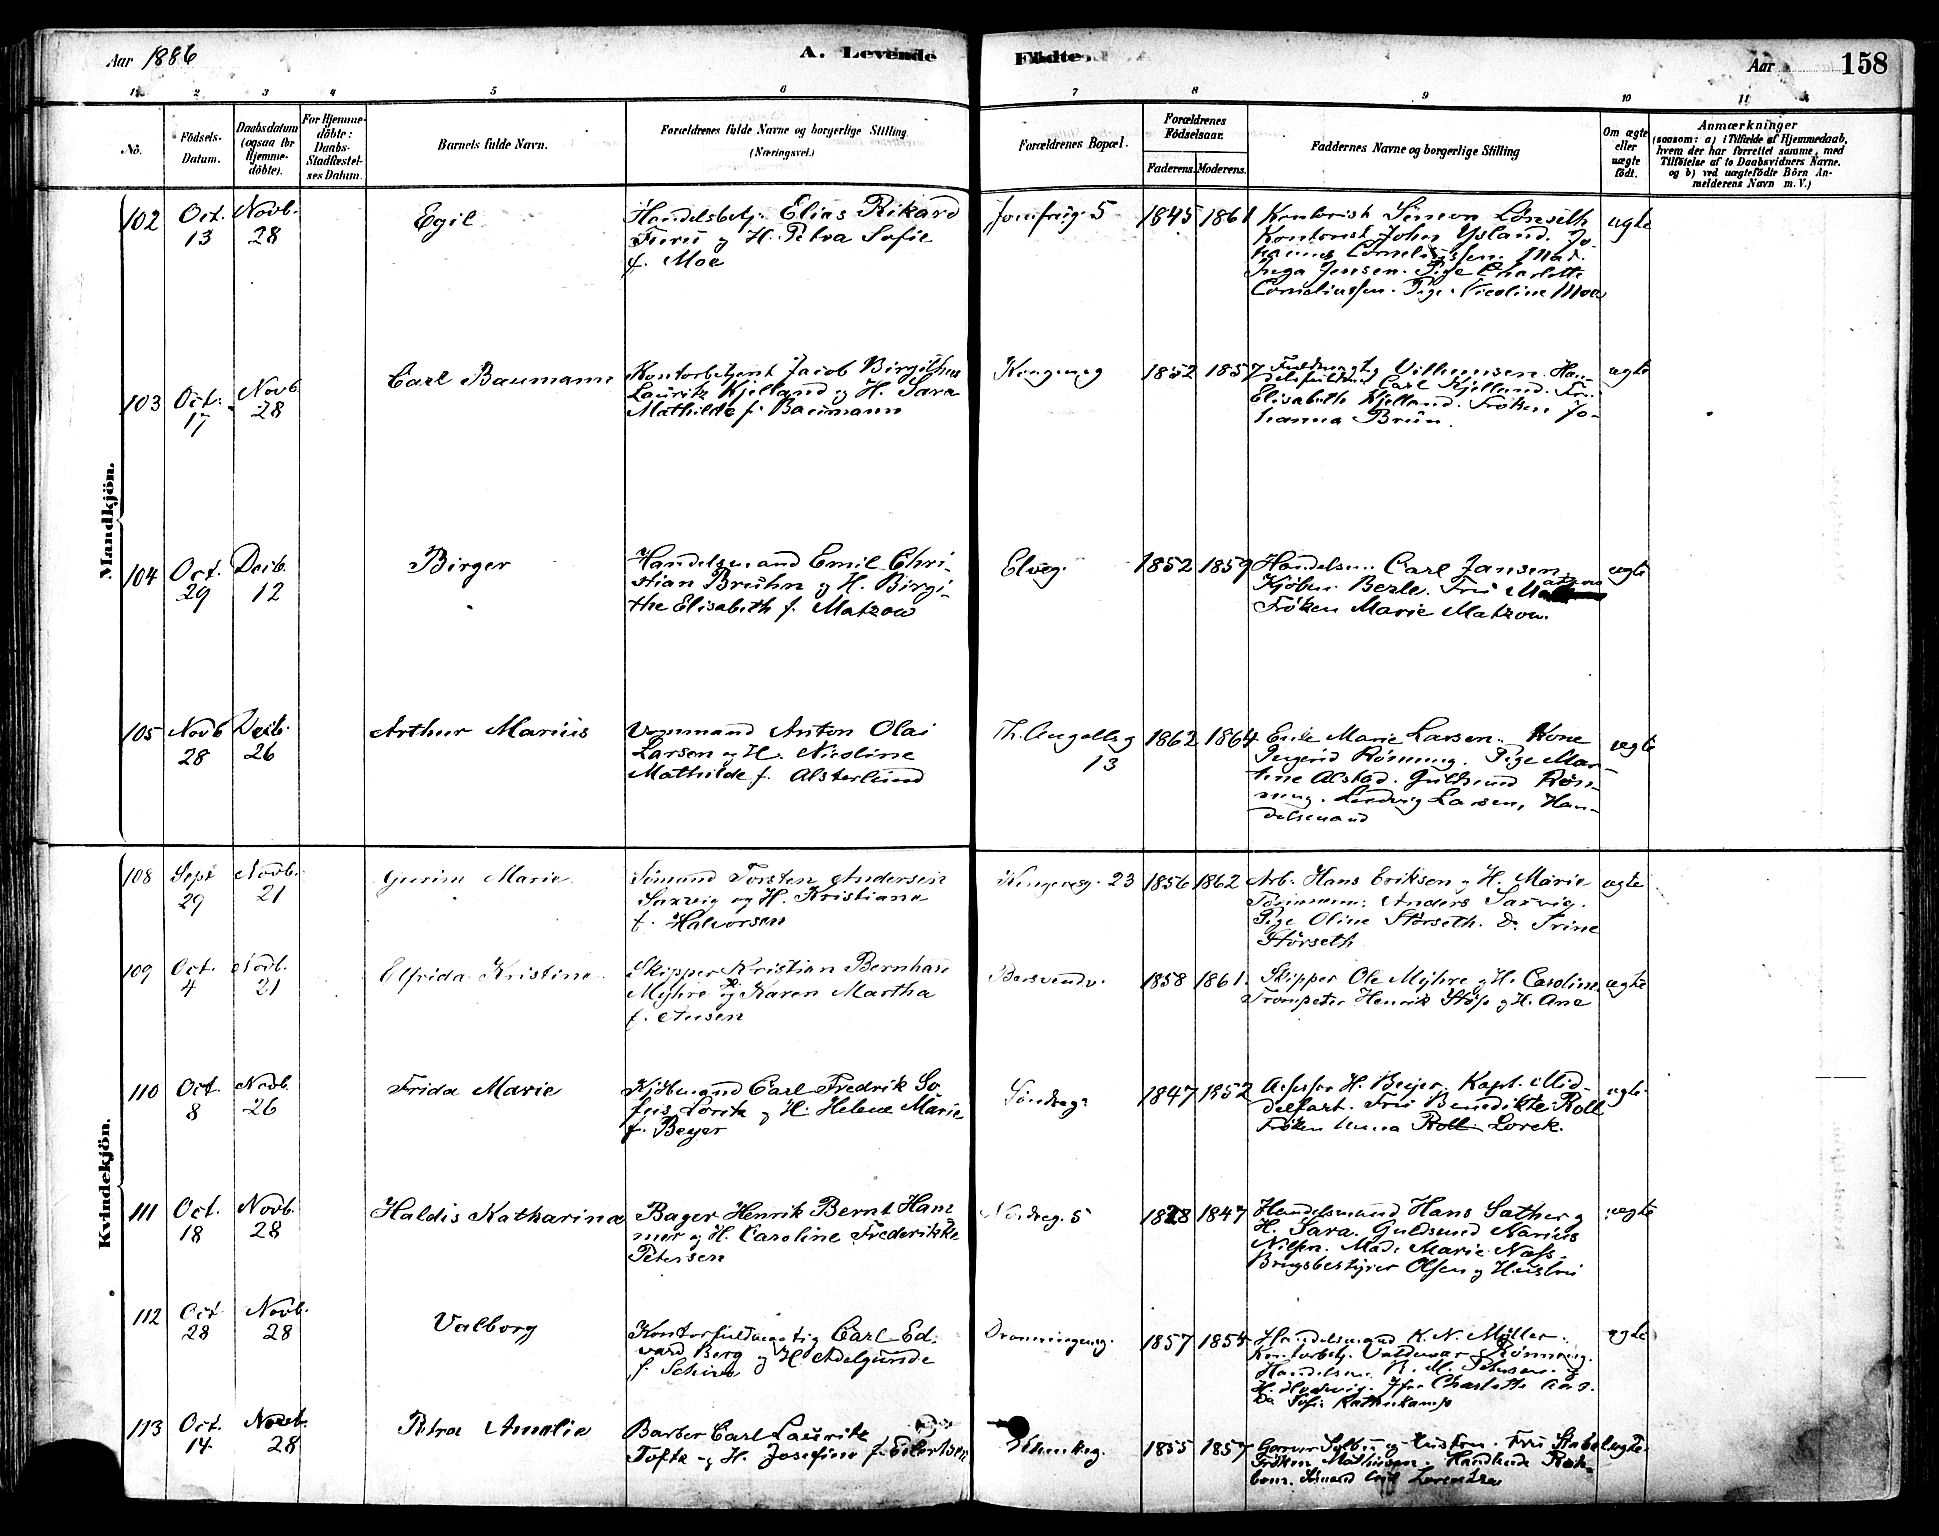 Aar 1886
A. Levende
Födte
Aar
158
1 2 3 4 5 6 7 8 9 10 11
No.
Födsels-Datum.
Daabsdatum (ogsaa for Hjemme-döbte).
For Hjemme-döbte: Daabs-Stadfæstel-ses Datum.
Barnets fulde Navn.
Forældrenes fulde Navne og borgerlige Stilling (Næringsvei.)
Forældrenes Bopæl.
Forældrenes Födselsaar.
Faderens. Moderens.
Faddernes Navne og borgerlige Stilling
Om ægte eller uægte födt.
Anmærkninger
(saasom: a) i Tilfælde af Hjemmedaab, hvem der har forrettet samme, med Tilföielse af to Daabsvidners Navne. og b) ved uægtefödte Börn An-melderens Navn m. V.)
Mandkjön.
102 Oct. 13 Novb. 28 Egil
Handelsbetj. Elias Rikard
Furu og H. Petra Sofie
f. Moe
Jomfrug. 5 1845 1861
Kontorist Simon Lönseth
Kontorist John Ysland. Jo-
hannes Corneliussen. Mad.
Inga Jensen. Pige Charlotte
Corneliussen. Pige Nicoline Moe
ægte
103 Oct. 17 Novb. 28 Carl Baumann
Kontorbetjent Jacob
Lauritz Kjelland og H. Sara
Mathilde f. Baumann
Kongensg 1852 1857
Fuldmægtig Villumsen. Han-
Carl Kjelland. Fru
Elisabeth Kjelland. Fröken Jo-
hanna Brun.
ægte
104 Oct. 29 Decb. 12 Birger
Handelsmand Emil Chri-
stian Bruhn og H. Birgi-
the Elisabeth f. Matzow
Elveg. 1852 1859
Handelsm. Carl Jansen
Kjöbm. Fru
Fröken Marie Matzow.
ægte
105 Novb 28 Decb. 26 Arthur Marius
Vognmand Anton Olai
Larsen og H. Nicoline
Mathilde f. Alsterlund
Th. Angellsg 13 1862 1864
Enke Marie Larsen. Kone
Ingerid Rönning. Pige Mar-
tine Alstad. Guldsmed Rön-
ning. Ludvig Larsen, Han-
delsmand
ægte
Kvindekjön.
108 Sept 29 Novb. 21 Gurine Marie
Sömand Torsten Andersen
Sarvig og H. Kristiane
f. Halvorsen
Kongensg. 23 1856 1862
Arb. Hans Eriksen og H. Marie
Tömmerm. Anders Sarvig.
Pige Oline Störseth. Do Trine
Störseth
ægte
109 Oct. 4 Novb. 21 Elfrida Kristine
Skipper Kristian Bernhard
Myhre og H. Karen Martha
f. Ausen
Bersvendv. 1858 1861
Skipper Ole Myhre og H. Caroline
Trompeter Henrik Stöp og H. Ane
ægte
110 Oct 8 Novb. 26 Frida Marie
Kjöbmand Carl Fredrik So
fus Lorck og H. Helene Marie
f. Beyer
Söndreg. 1847 1852
Assessor H. Beyer. Kapt. Mid-
delfart. Fru Benedikte Roll
Fröken Anna Roll Lorck.
ægte
111 Oct. 18 Novb. 28 Haldis Katharina
Bager Henrik Bernt Ham
mer og H. Caroline Frederikke
Petersen
Nordreg. 5 1828 1847
Handelsmand Hans Sather og
H. Sara. Guldsmed Marius
Nilsen. Mad. Marie Næss.
Brugsbestyrer Olsen og Hustru
uægte
112 Oct 28 Novb. 28 Valborg
Kontorfuldmægtig Carl Ed-
vard Berg og H. Adelgunde
f. Schive
Dronningensg. 1857 1854
Handelsmand K. N. Möller.
Kontorbetj. Valdemar Rönning.
Handelsm. R. M. Petersen og
H. Hedevig. Jfr. Charlotte Aas.
Do Sofie
ægte
113 Oct. 14 Novb. 28 Petra Amalie
Barber Carl Lauritz
Tofte og H. Josefine f. Eilertsen
1855 1857
Garver og Hustru. Fru
Fröken Mathiesen.
Lorentzen
ægte